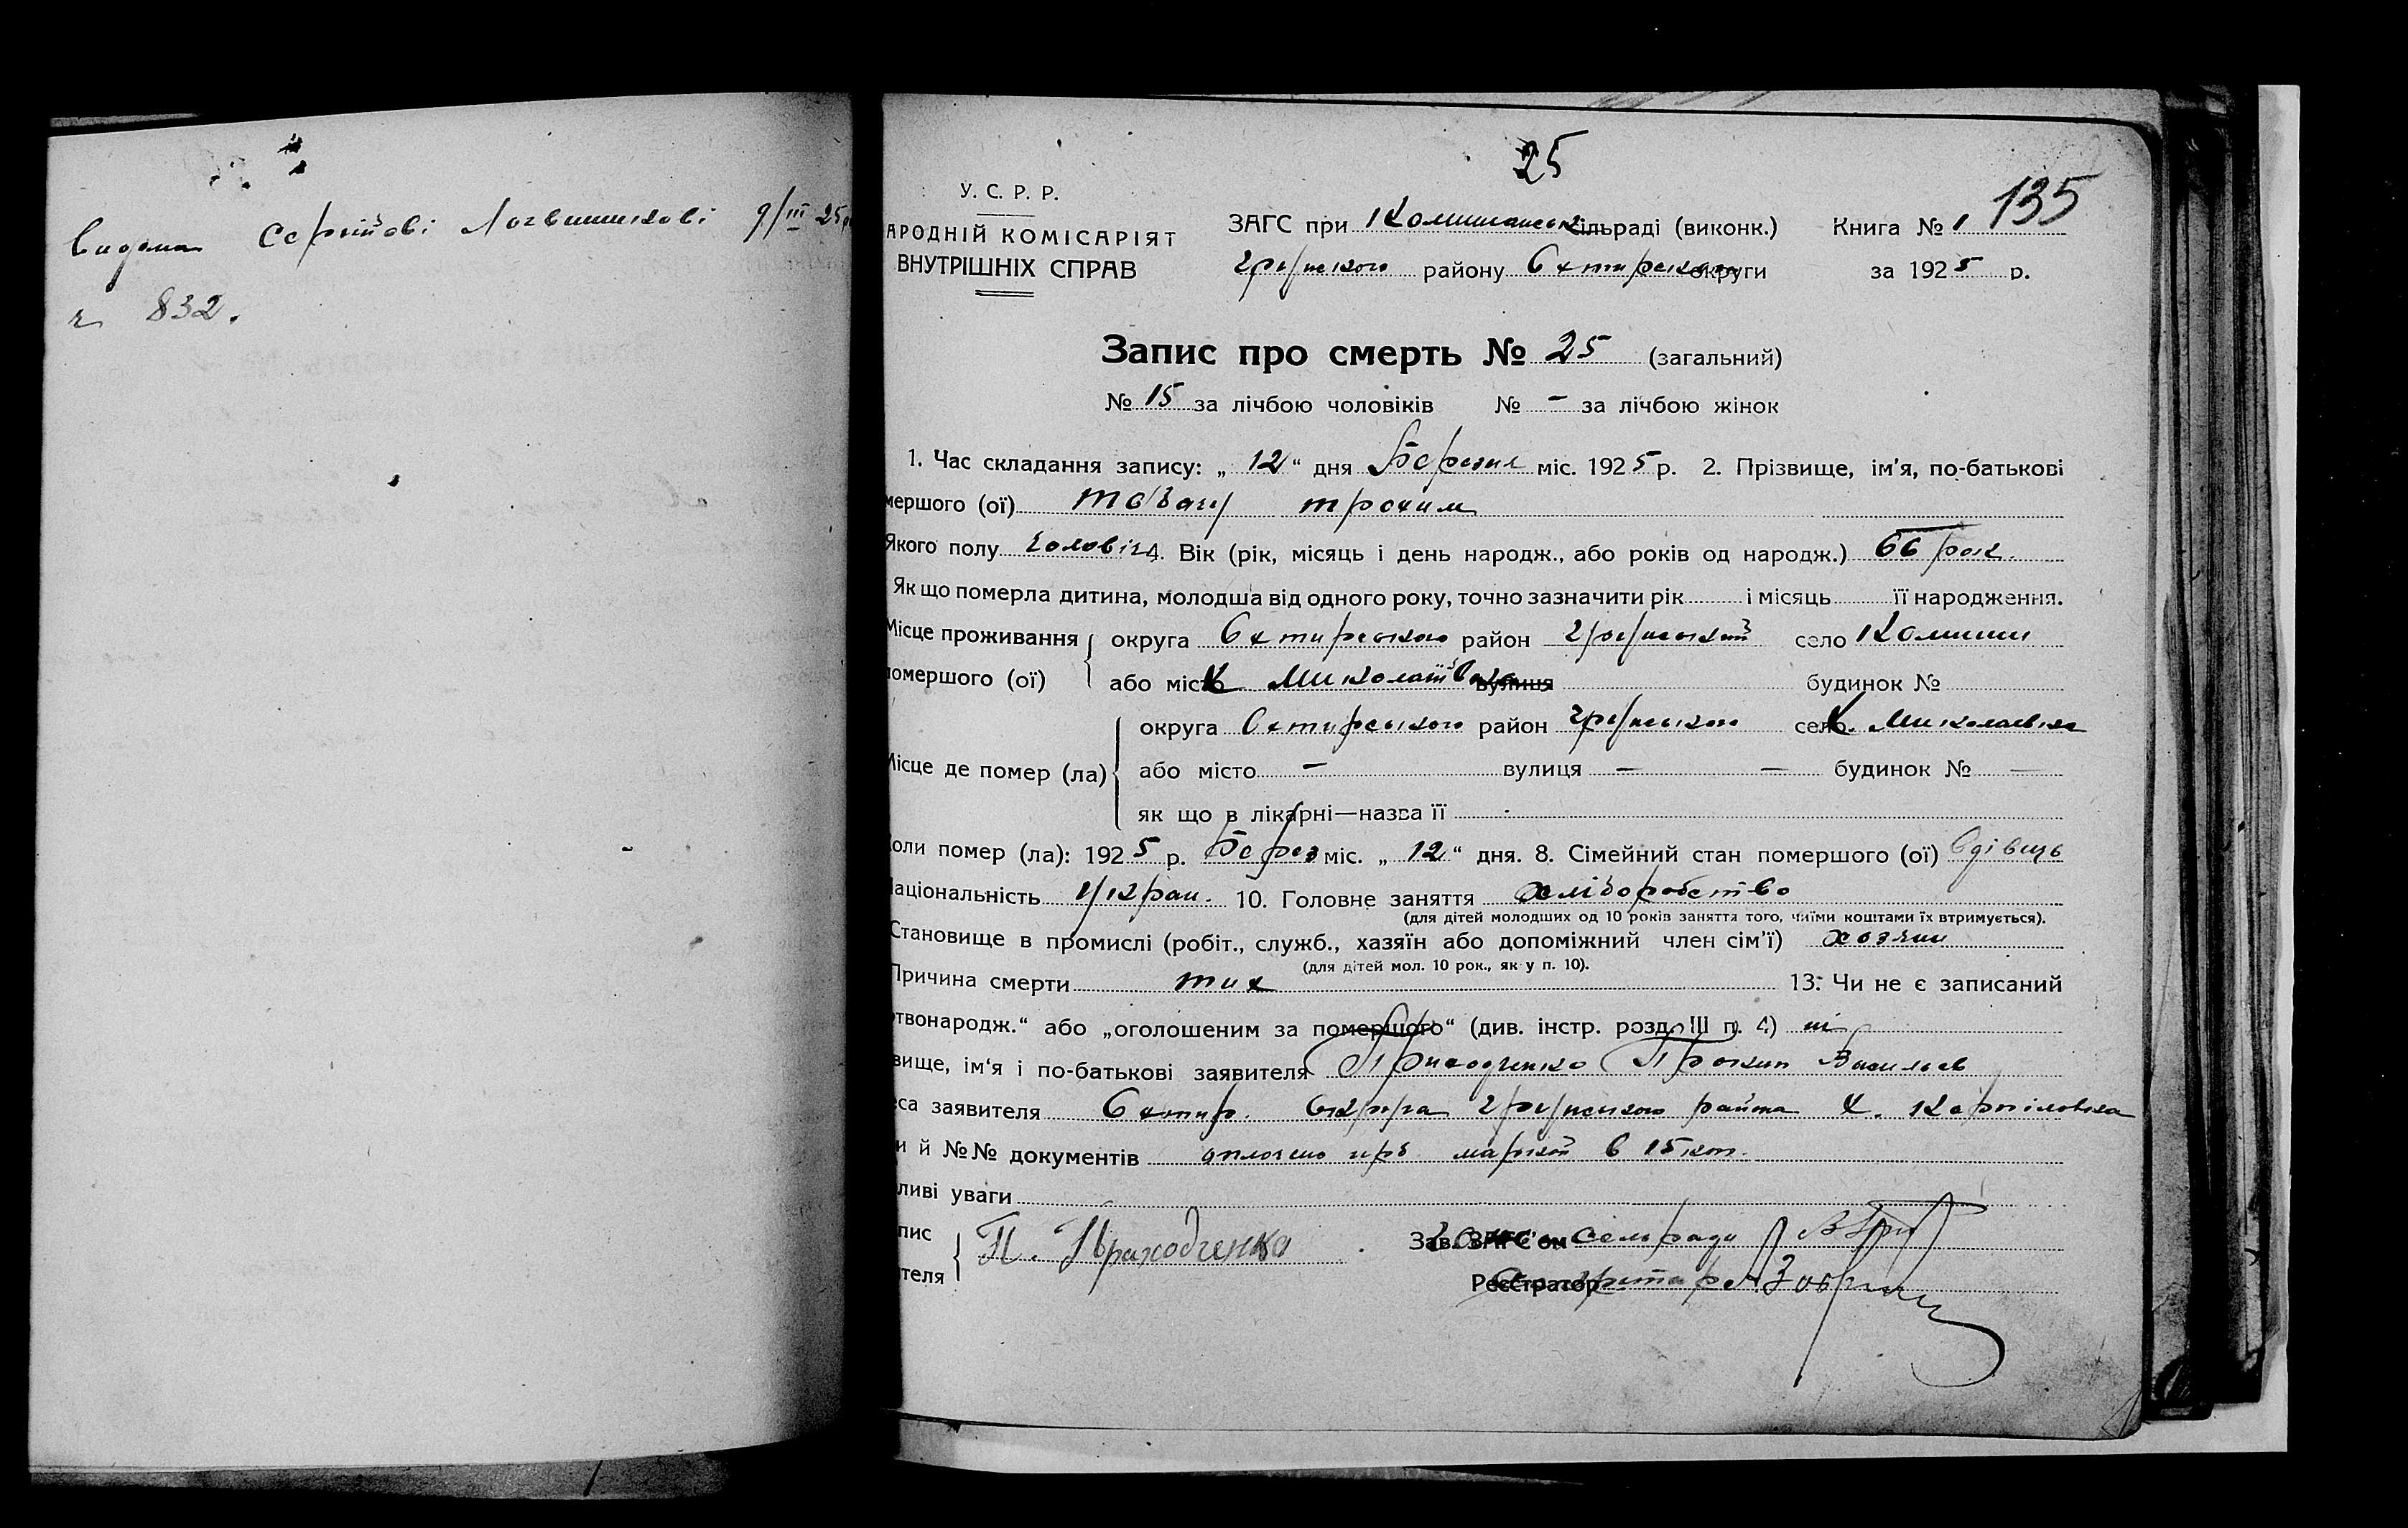 видана Сергійові Логвиненкові 9/III 25р
ч 832.
25
135
У. С. Р. Р.
АРОДНІЙ КОМІСАРІЯТ
ВНУТРІШНІХ СПРАВ
ЗАГС при Комишанськ сільраді (виконк.) Книга № 1
Грунського району Охтирськои округи за 1925 р.
Запис про смерть № 25 (загальний)
№ 15 за лічбою чоловіків № – за лічбою жінок
1. Час складання запису: „ 12 “ дня Березня міс. 1925 р. 2. Прізвище, ім'я, по-батькові
мершого (ої) Трохим
Якого полу чоловіч 4. Вік (рік, місяць і день народж., або років од народж.) 66 рок.
Як що померла дитина, молодша від одного року, точно зазначити рік і місяць її народження.
Місце проживання округа Охтирського район Грунський село Комиши
помершого (ої) або місто х Миколаївка вулиця будинок №
округа Охтирського район Грунського село х. Миколаевка
Місце де помер (ла) або місто – вулиця – – будинок № –
як що в лікарні—назва її
Коли помер (ла): 1925 р. Берез міс. „ 12 “ дня. 8. Сімейний стан помершого (ої) вдівець
Національність Украи. 10. Головне заняття хліборобство
(для дітей молодших од 10 років заняття того, чиїми коштами їх втримується).
Становище в промислі (робіт., служб., хазяїн або допоміжний член сім'ї) хозяин
(для дітей мол. 10 рок., як у п. 10).
Причина смерти тих 13. Чи не є записаний
ртвонародж.“ або „оголошеним за помершого“ (див. інстр. розд. III п. 4) ні
вище, ім'я і по-батькові заявителя Приходченко Прокип Васильев
еса заявителя Охтир. Округа Грунського района х. Корпиловка
и й №№ документів оплочено маркой в 15 коп.
ливі уваги
пис П. Приходченко Зав. ЗАГС'ом Голова сельради
ителя Реєстратор Секретар